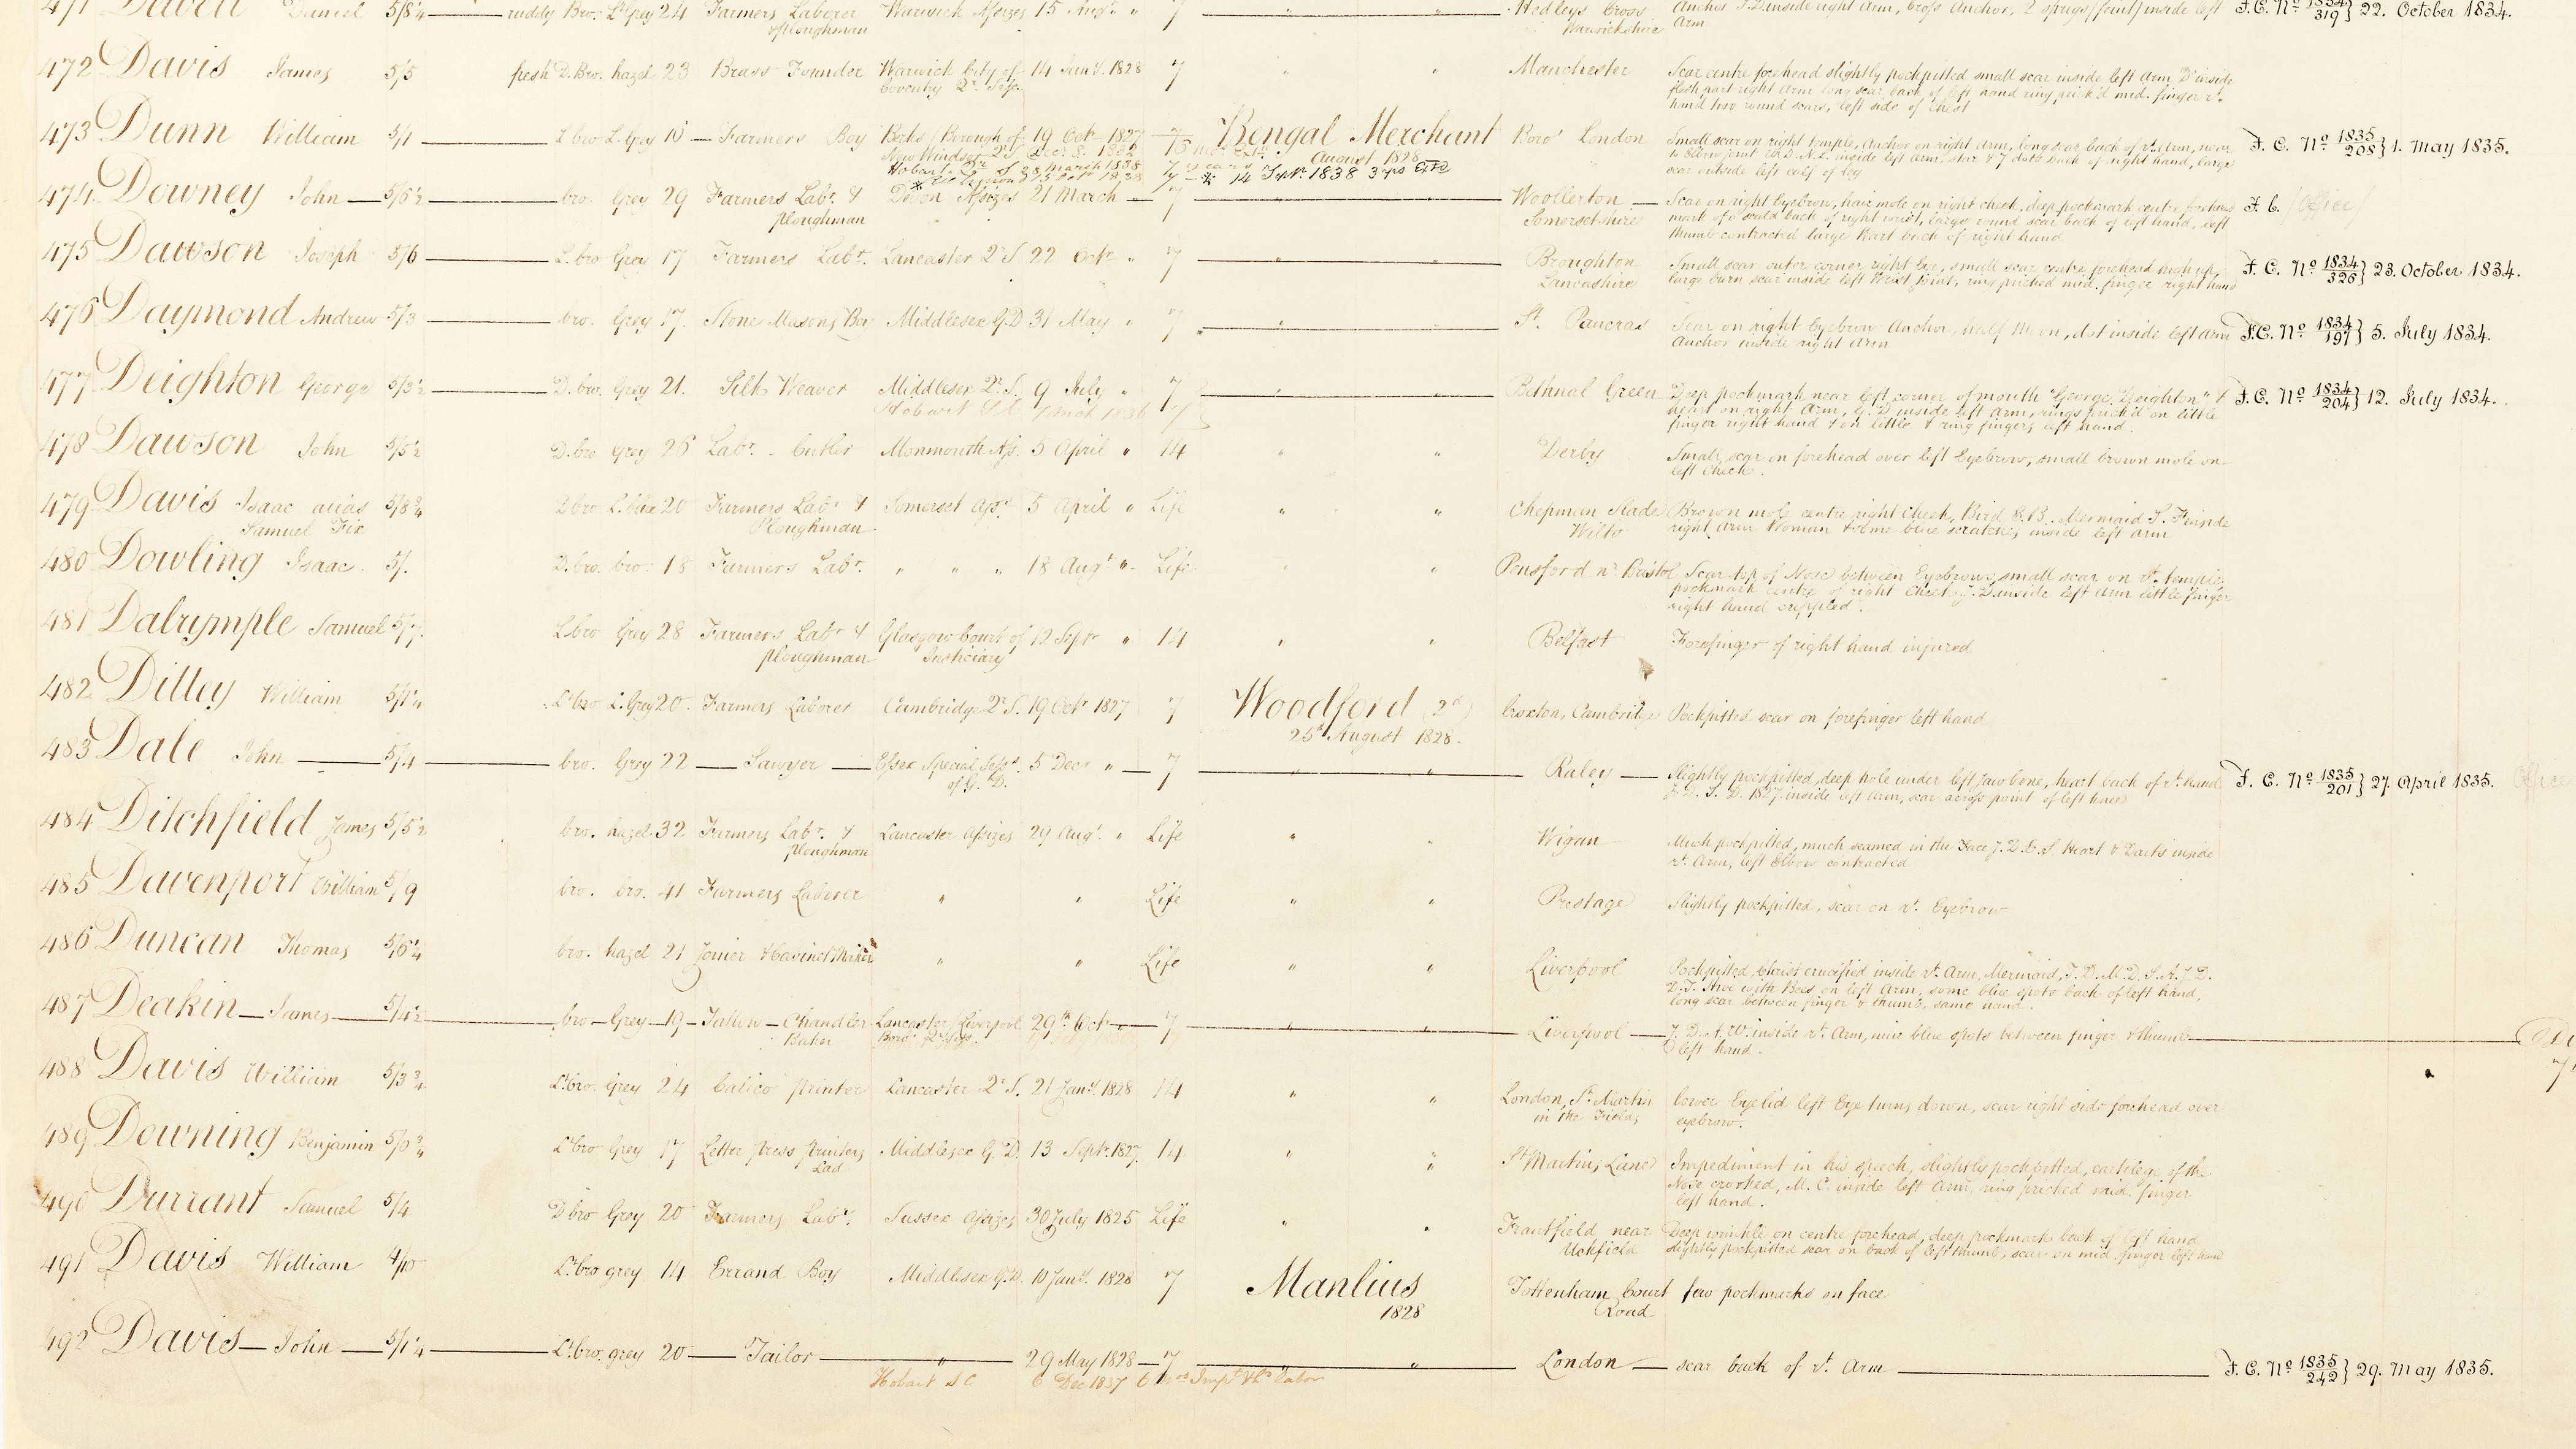 471 Daniel 5/8¼ ruddy Bro. Lt Grey 24 Farmers Laborer Warwick Assizes 15 Augt. " 7 " " Hedleys Cross Anchor J.D. inside right Arm, Cross Anchor, 2 sprigs (faint) inside left F.C. No 1834/319} 22. October 1834.
& Ploughman Warwickshire Arm
472 Davis James 5/5 fresh D.Bro. hazel 23 Brass Founder Warwick City of 14 Jany. 1828 7 " " Manchester Scar centre forehead slightly pockpitted small scar inside left Arm D inside
Coventry Qr. Sess. flesh part right Arm long scar back of left hand ring prick'd mid. finger rt.
hand two round scars, left side of Chest
473 Dunn William 5/1 L bro L. Grey Farmers Boy Berks (Borough of 19 Octr 1827 7 Bengal Merchant Boro' London Small scar on right temple, Anchor on right Arm, long scar back of rt. Arm, near F.C. No. 1835/208} 1. May 1835.
New Windsor August 1828 to Elbow joint inside left Arm, star & 7 dots back of right hand, large
Hobart 14 Septr. 1838 3 yrs scar outside left calf of leg
474 Downey John 5/6½ bro. Grey 29 Farmers Labr. & Devon Assizes 21 March 7 " " Woollerton Scar on right Eyebrow, hair mole on right cheek, deep pockmark centre forehead F.C. (Office)
ploughman Somersetshire mark of a scald back of right wrist, large round scar back of left hand, left
thumb contracted large Wart back of right hand
475 Dawson Joseph 5/6 L. bro Grey 17 Farmers Labr. Lancaster Qr S 22 Octr " 7 " " Broughton Small scar outer corner right Eye, small scar centre forehead high up, F.C. No. 1834/326} 23. October 1834.
Lancashire large burn scar inside left Wrist joint, ring pricked mid. finger right hand
476 Daymond Andrew 5/3 bro. Grey 17 Stone Masons Boy Middlesex G.D 31 May " 7 " " St. Pancras Scar on right Eyebrow Anchor, half Moon, dot inside left arm F.C. No 1834/197} 5. July 1834.
Anchor inside right Arm
477 Deighton George 5/3½ D. bro. Grey 21. Silk Weaver Middlesex Qr. S. 9 July " 7 " Bethnal Green Deep pockmark near left corner of mouth "George Deighton" & F.C. No. 1834/204} 12. July 1834.
Hobart 1836 heart on right Arm, G.D. inside left Arm, rings prick'd on little
finger right hand & on little & ring fingers left hand.
478 Dawson John 5/5½ D. bro Grey 26 Labr. - Cutler Monmouth As. 5 April " 14 " " Derby Small scar on forehead over left Eyebrow, small brown mole on
left cheek.
479 Davis Isaac alias 5/8¾ D bro L. blue 20 Farmers Labr & Somerset Asss 5 April " Life " " Chepman Slade Brown mole centre right Cheek, Bird, E.B. Mermaid S. F inside
Samuel Fix Ploughman Wilts right Arm Woman & some blue scratches inside left Arm
480 Dowling Isaac 5/. D. bro. bro. 18 Farmers Labr. " " " 18 Augt " Life " " Pensford nr Bristol Scar top of Nose between Eyebrows, small scar on rt. temple,
pockmark centre of right Cheek, J.D. inside left Arm little finger
right hand crippled.
481 Dalrymple Samuel 5/7. L bro Grey 28 Farmers Labr & Glasgow Court of 12 Septr " 14 " " Belfast Forefinger of right hand injured
ploughman Justiciary
482 Dilley William 5/1¼ Lt bro L. Grey 20. Farmers Laborer Cambridge Qr. S. 19 Octr 1827 7 Woodford (2d) Croxton, Cambridge Pockpitted scar on forefinger left hand
25th August 1828.
483 Dale John 5/4 bro. Grey 22 Sawyer Essex Special Sesss. 5 Decr " 7 " " Raley Slightly pockpitted, deep hole under left Jaw bone, heart back of rt. hand, F.C. No 1835/201} 27. April 1835. Office
of G.D. J.D. S.D. 1827 inside left Arm, scar across point of left knee
484 Ditchfield James 5/5½ bro. hazel 32 Farmers Labr. & Lancaster Assizes 29 Augt. " Life " " Wigan Much pockpitted, much seamed in the Face J.D.E.S. Heart & Darts inside
ploughman rt. Arm, left Elbow contracted
485 Davenport William 5/9 bro. bro. 41 Farmers Laborer " " Life " " Prestage Slightly pockpitted, scar on rt. Eyebrow
486 Duncan Thomas 5/6¼ bro. hazel 21 Joiner & Cabinet Maker " " Life " " Liverpool Pockpitted, Christ crucified inside rt. Arm, Mermaid, T.D. M.D. S.A.J.D.
D.T. Hive with Bees on left Arm, some blue spots back of left hand,
long scar between finger & thumb, same hand.
487 Deakin James 5/4½ bro Grey 19 Tallow Chandler Lancaster (Liverpool 29th Octr " 7 " " Liverpool J.D. A.W. inside rt. Arm, nine blue spots between finger & thumb
Baker Boro' Qr. Sess. left hand.
488 Davis William 5/3¾ Lt bro. Grey 24 Calico printer Lancaster Qr S. 21 Jany. 1828 14 " " London, St. Martin lower Eyelid left Eye turns down, scar right side forehead over
in the Fields eyebrow.
489 Downing Benjamin 5/0¾ Lt bro Grey 17 Letter press printers Middlesex G.D. 13 Sept. 1827. 14 " " St Martins Lane Impediment in his speech, slightly pockpitted, cartilege of the
Lad Nose crooked, M.C. inside left Arm, ring pricked mid. finger
left hand.
490 Durrant Samuel 5/4 D bro Grey 20 Farmers Labr. Sussex Assizes 30 July 1825 Life " " Frantfield near Deep wrinkle on centre forehead, deep pockmark back of left hand
Uckfield slightly pockpitted scar on back of left thumb, scar on mid. finger left hand
491 Davis William 4/10 Lt bro grey 14 Errand Boy Middlesex G.D. 10 Jany. 1828 7 Manlius Tottenham Court few pockmarks on face
1828 Road
492 Davis John 5/1¼ Lt. bro. grey 20 Tailor " 29 May 1828 7 " " London scar back of rt. Arm F.C. No 1835/242} 29. May 1835.
Hobart S C 6 Dec 1837 6 mos Impt & hd labor